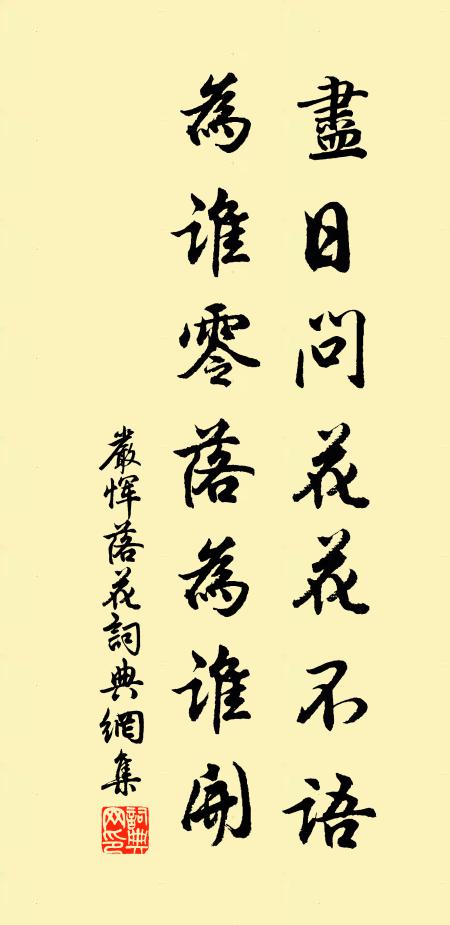 盡日問花花不語
為誰零落為誰開
嚴惲落花詞典網集
詞典网印